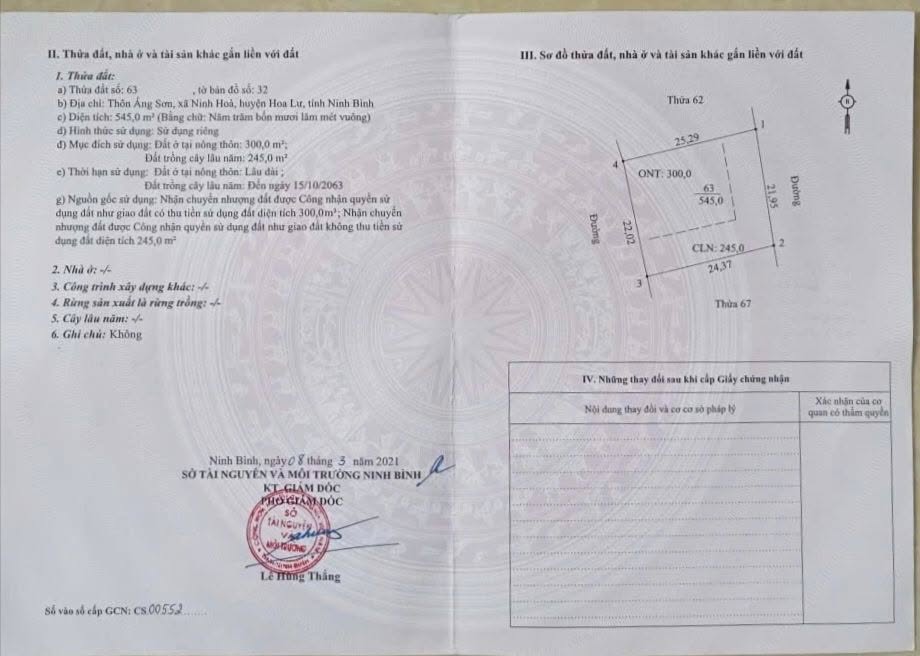 II. Thửa đất, nhà ở và tài sản khác gắn liền với đất
1. Thửa đất:
a) Thửa đất số: 63 , tờ bản đồ số: 32
b) Địa chỉ: Thôn Áng Sơn, xã Ninh Hoà, huyện Hoa Lư, tỉnh Ninh Bình
c) Diện tích: 545,0 m² (Bằng chữ: Năm trăm bốn mươi lăm mét vuông)
d) Hình thức sử dụng: Sử dụng riêng
đ) Mục đích sử dụng: Đất ở tại nông thôn: 300,0 m²;
Đất trồng cây lâu năm: 245,0 m²
e) Thời hạn sử dụng: Đất ở tại nông thôn: Lâu dài ;
Đất trồng cây lâu năm: Đến ngày 15/10/2063
g) Nguồn gốc sử dụng: Nhận chuyển nhượng đất được Công nhận quyền sử
dụng đất như giao đất có thu tiền sử dụng đất diện tích 300,0m²; Nhận chuyển
nhượng đất được Công nhận quyền sử dụng đất như giao đất không thu tiền sử
dụng đất diện tích 245,0 m²
2. Nhà ở: -/-
3. Công trình xây dựng khác: -/-
4. Rừng sản xuất là rừng trồng: -/-
5. Cây lâu năm: -/-
6. Ghi chú: Không
Ninh Bình, ngày 08 tháng 3 năm 2021
SỞ TÀI NGUYÊN VÀ MÔI TRƯỜNG NINH BÌNH
KT. GIÁM ĐỐC
PHÓ GIÁM ĐỐC
SỞ
TÀI NGUYÊN
VÀ
MÔI TRƯỜNG
Lê Hùng Thắng
Số vào sổ cấp GCN: CS.00552......
III. Sơ đồ thửa đất, nhà ở và tài sản khác gắn liền với đất
Thửa 62
1
25,29
4
ONT: 300,0
63
545,0
21,95
Đường
Đường
22,02
CLN: 245,0
2
24,37
3
Thửa 67
IV. Những thay đổi sau khi cấp Giấy chứng nhận
Nội dung thay đổi và cơ cơ sở pháp lý
Xác nhận của cơ
quan có thẩm quyền